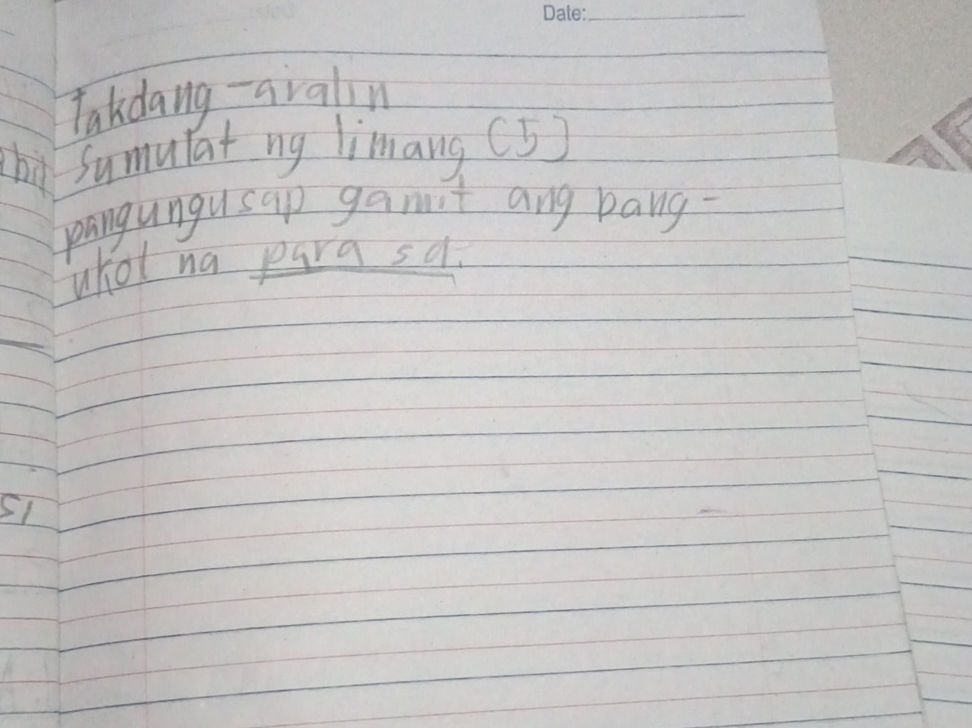 Date:
Takdang-aralin
Sumulat ng limang (5)
pangungusap gamit ang pang-
ukol na para sa.
15